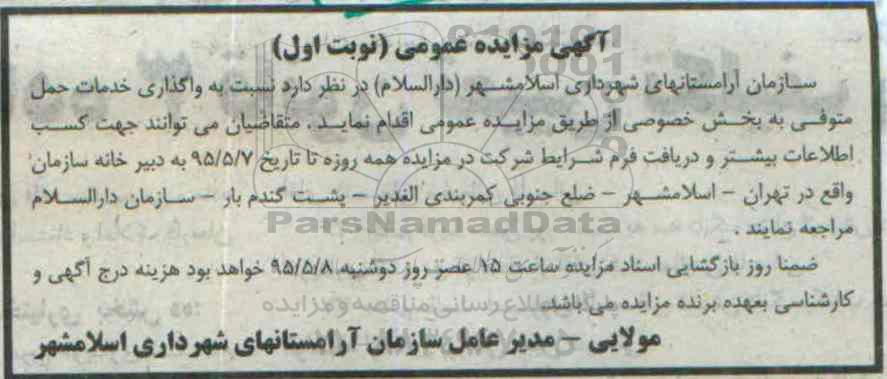 آگهی مزایده عمومی (نوبت اول)
سازمان آرامستانهای شهرداری اسلامشهر (دارالسلام) در نظر دارد نسبت به واگذاری خدمات حمل
متوفی به بخش خصوصی از طریق مزایده عمومی اقدام نماید . متقاضیان می توانند جهت کسب
اطلاعات بیشتر و دریافت فرم شرایط شرکت در مزایده همه روزه تا تاریخ ۹۵/۵/۷ به دبیر خانه سازمان
واقع در تهران - اسلامشهر - ضلع جنوبی کمربندی الغدیر - پشت گندم بار - سازمان دارالسلام
ParsNamadData
مراجعه نمایند .
ضمنا روز بازگشایی اسناد مزایده ساعت ۱۵ عصر روز دوشنبه ۹۵/۵/۸ خواهد بود هزینه درج آگهی و
کارشناسی بعهده برنده مزایده می باشد.
مولایی - مدیر عامل سازمان آرامستانهای شهرداری اسلامشهر